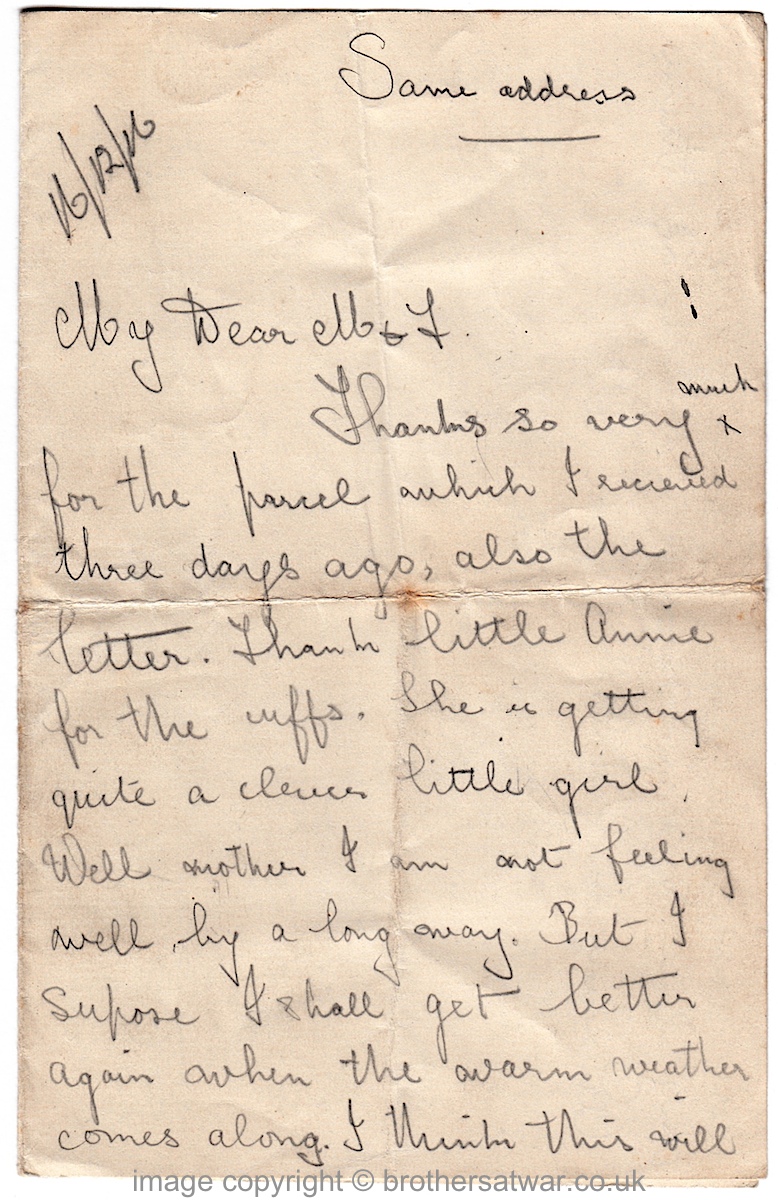 Same address
16/12/16
My Dear M & F.
Thanks so very much x
for the parcel which I recieved
three days ago, also the
letter. Thank little Annie
for the cuffs. She is getting
quite a clever little girl.
Well mother I am not feeling
well by a long way. But I
supose I shall get better
again when the warm weather
comes along. I think this will
image copyright © brothersatwar.co.uk